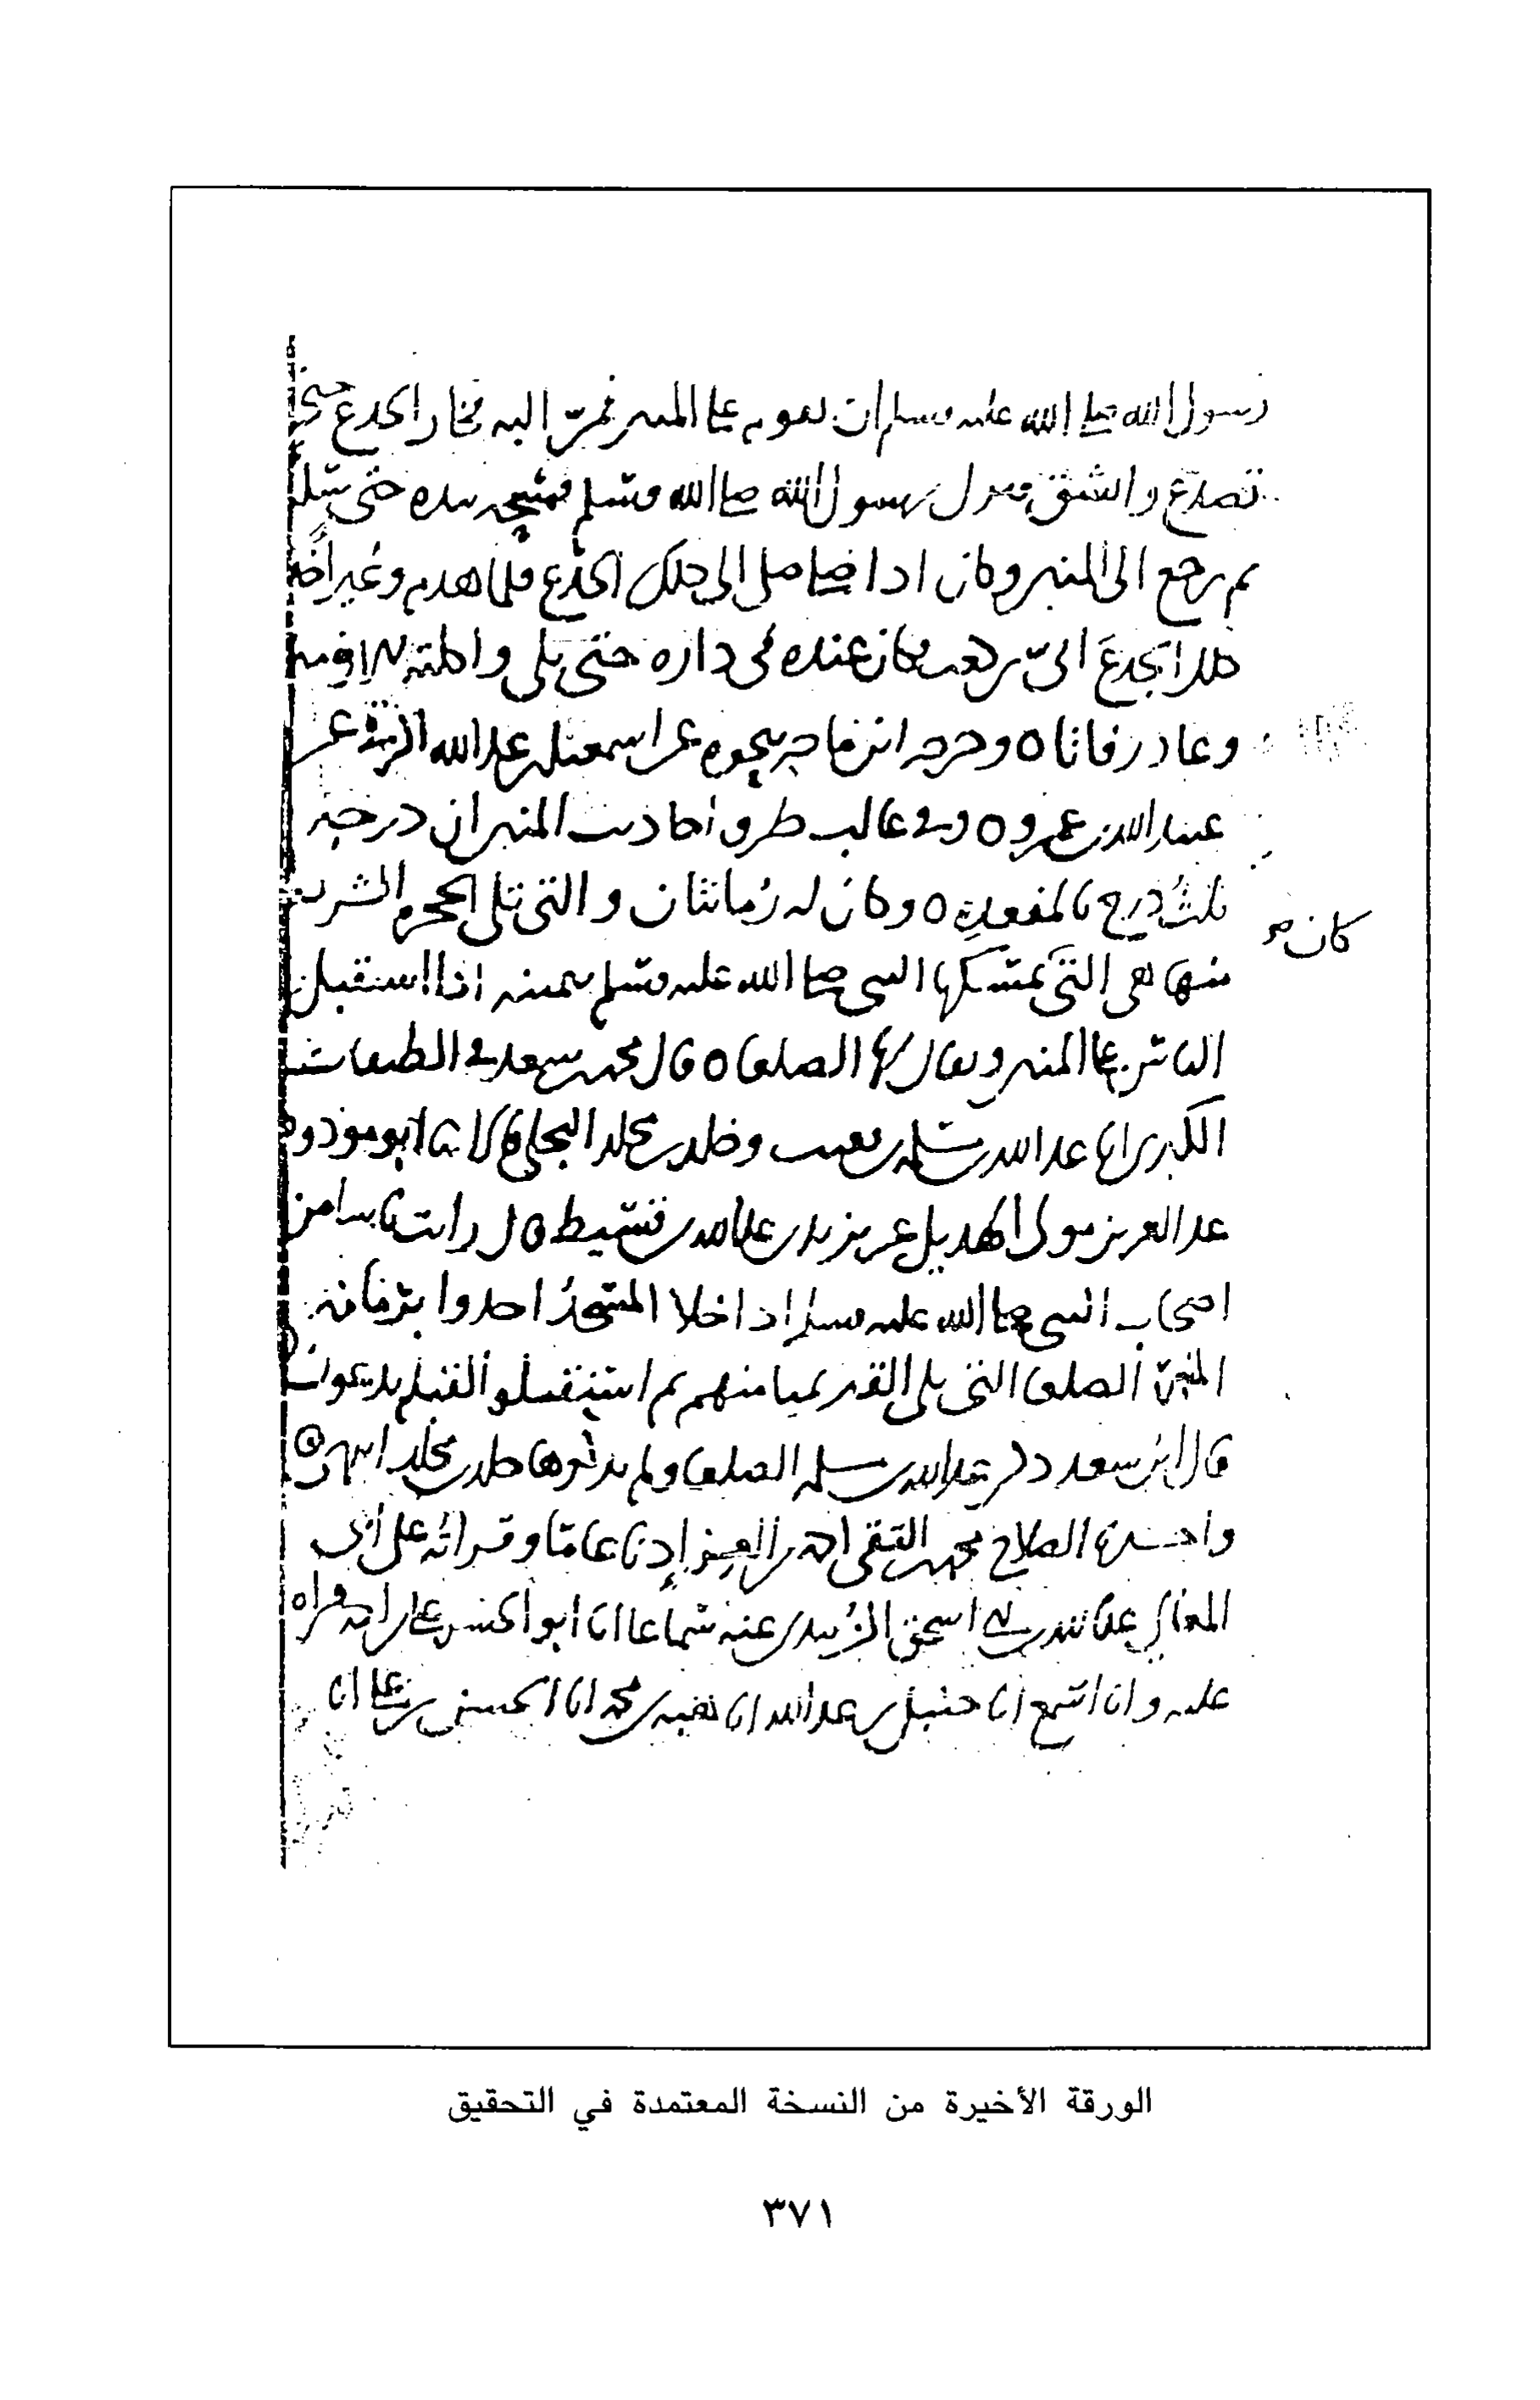 رسول الله صلى الله عليه وسلم ان يقوم على المنبر فمر اليه فخار الجذع حتى
تصدع وانشق فنزل رسول الله صلى الله وسلم فمسحه بيده حتى سكن
ثم رجع الى المنبر وكان اذا صلى صلى الى ذلك الجذع فلما هدم وغير اخذ
ذلك الجذع ابي بن كعب فكان عنده في داره حتى بلي واكلته الارضه
وعاد رفاتا ٥ وخرجه ابن ماجه بنحوه عن اسمعيل بن عبد الله الرقي عن
عبيد الله بن عمرو ٥ وفي غالب طرق احاديث المنبر ان درجه
ثلث درج بالمقعد ٥ وكان له رمانتان والتي تلي الحجره الشريفه
كان
منها هي التي يمسكها النبي صلى الله عليه وسلم بيمينه اذا استقبل
الناس على المنبر ويقال لها الصلعا ٥ قال محمد بن سعد في الطبقات
الكبرى انا عبد الله بن مسلمه بن قعنب وخلد بن مخلد البجلي قالا ثنا ابو مودود
عبد العزيز مولى الهذيل عن يزيد بن عبد الله بن قسيط قال رايت ناسا من
اصحاب النبي صلى الله عليه وسلم اذا خلا المسجد اخذوا برمانة
المنبر الصلعا التي تلي القبر بميامنهم ثم استقبلوا القبله يدعون
قال ابن سعد ذكر عبد الله بن مسلمه الصلعا ولم يذكرها خلد بن مخلد انتهى
واخبرنا الصلاح محمد بن التقي احمد بن العز اذنا عاما وقراته على ابي
المعالي عبد الله بن اسحق الزبيدي عنه سماعا انا ابو الحسن علي بن احمد قراه
عليه وانا اسمع انا حنبل بن عبد الله انا هبه بن محمد انا الحسن بن علي انا
الورقة الأخيرة من النسخة المعتمدة في التحقيق
٣٧١